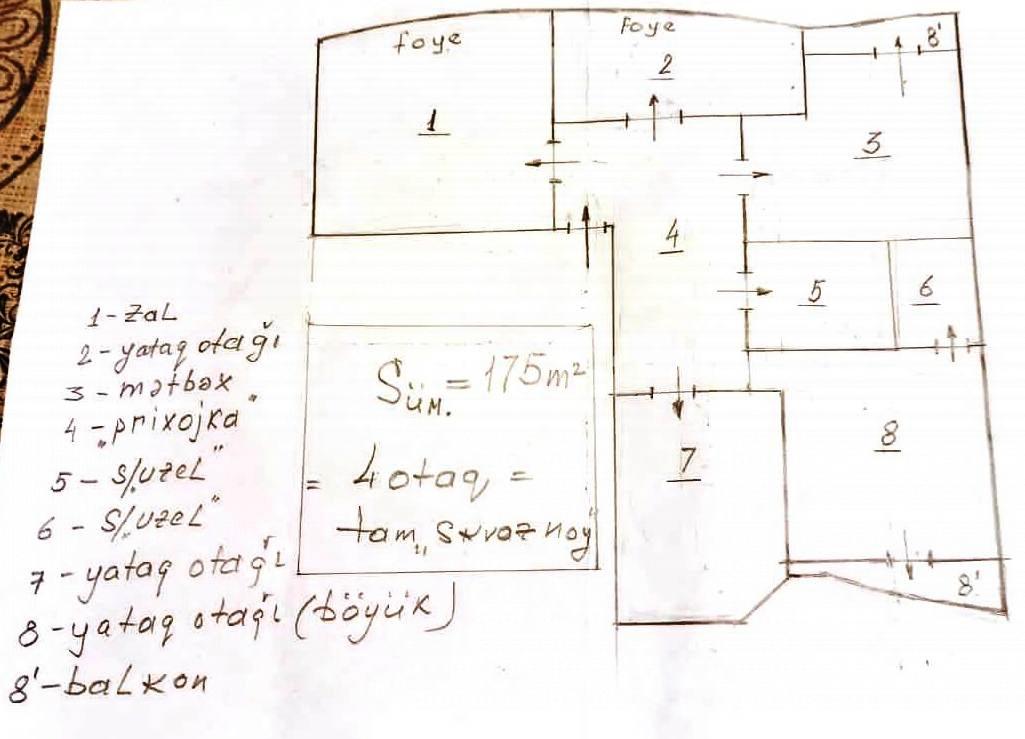 foye
Foye
8'
2
1
3
4
5
6
1-zaL
2-yataq otağı
3-mətbəx
4-„prixojka"
5-S/„uzeL"
6-S/„uzeL"
7-yataq otağı
8-yataq otağı (böyük)
8'-baLkon
Süm.=175m²
= 4otaq =
tam„skvoznoy"
7
8
8'